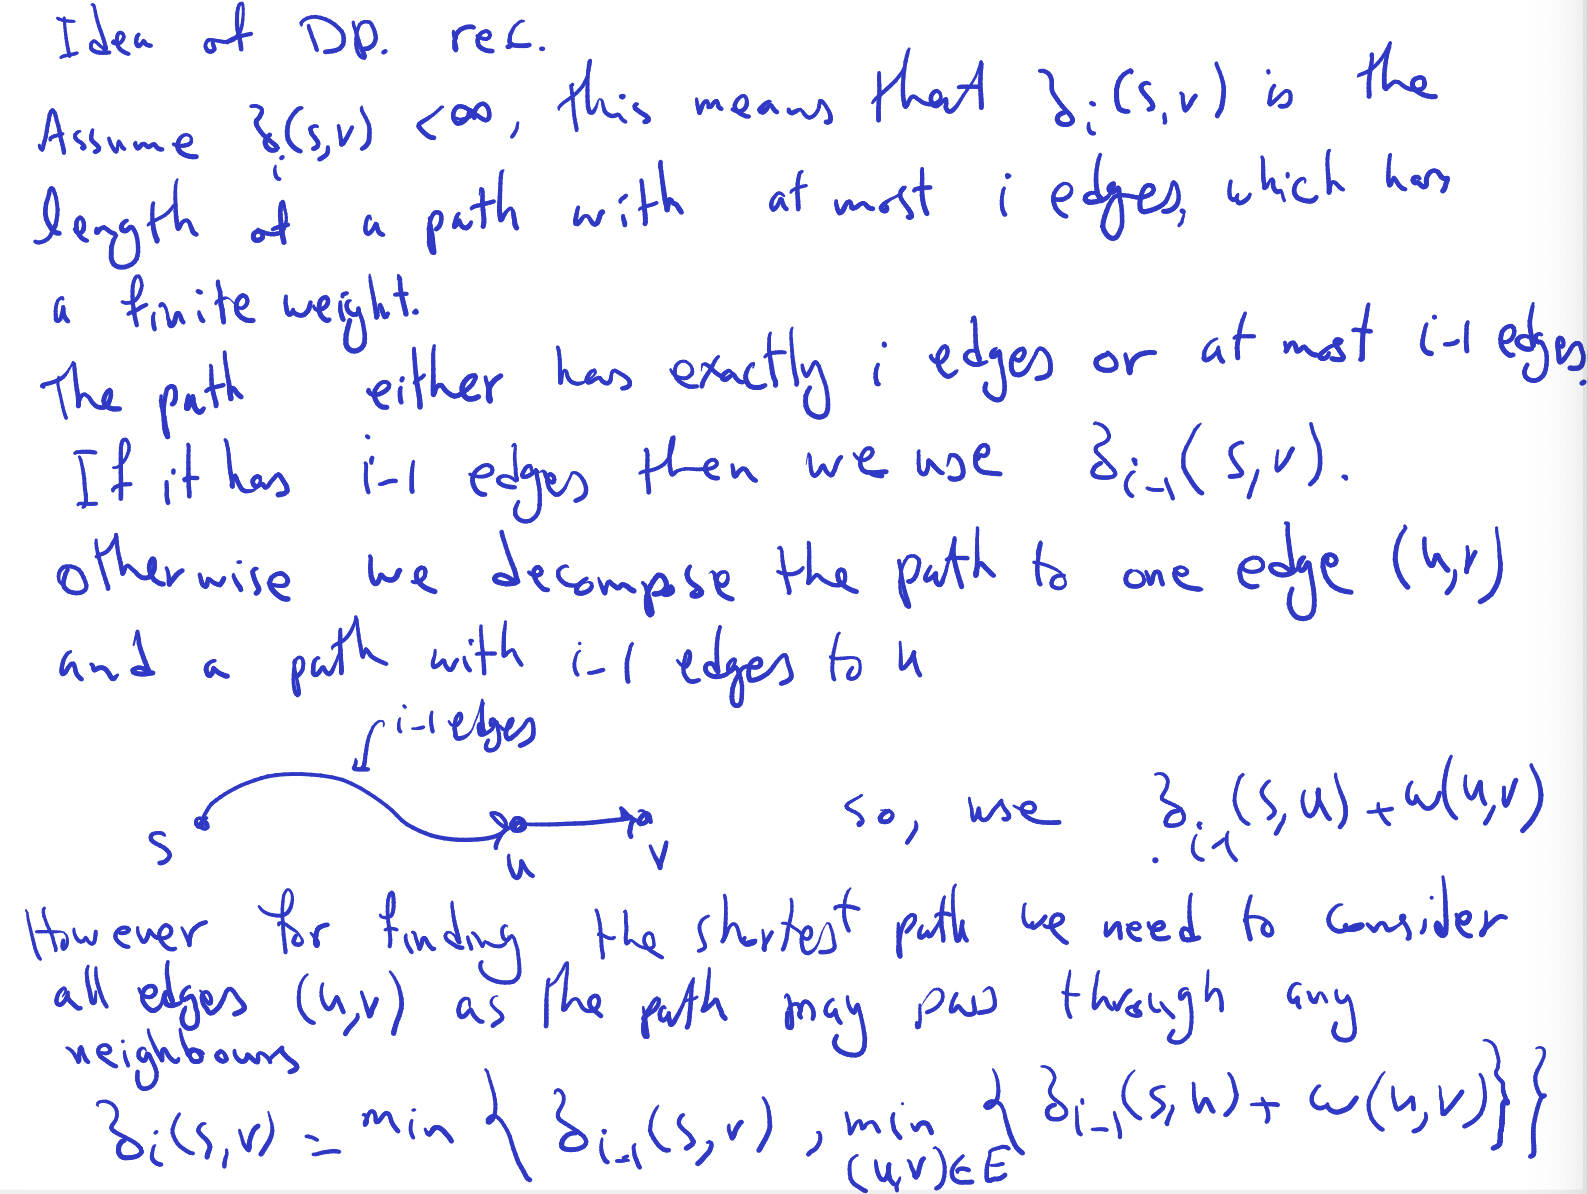 Idea of DP. rec.
Assume δ_i(s,v) < ∞, this means that δ_i(s,v) is the
length of a path with at most i edges, which has
a finite weight.
The path either has exactly i edges or at most i-1 edges.
If it has i-1 edges then we use δ_{i-1}(s,v).
otherwise we decompose the path to one edge (u,v)
and a path with i-1 edges to u
i-1 edges
s u v so, use δ_{i-1}(s,u) + w(u,v)
However for finding the shortest path we need to consider
all edges (u,v) as the path may pass through any
neighbours
δ_i(s,v) = min { δ_{i-1}(s,v), min { δ_{i-1}(s,u) + w(u,v)}}
(u,v)∈E